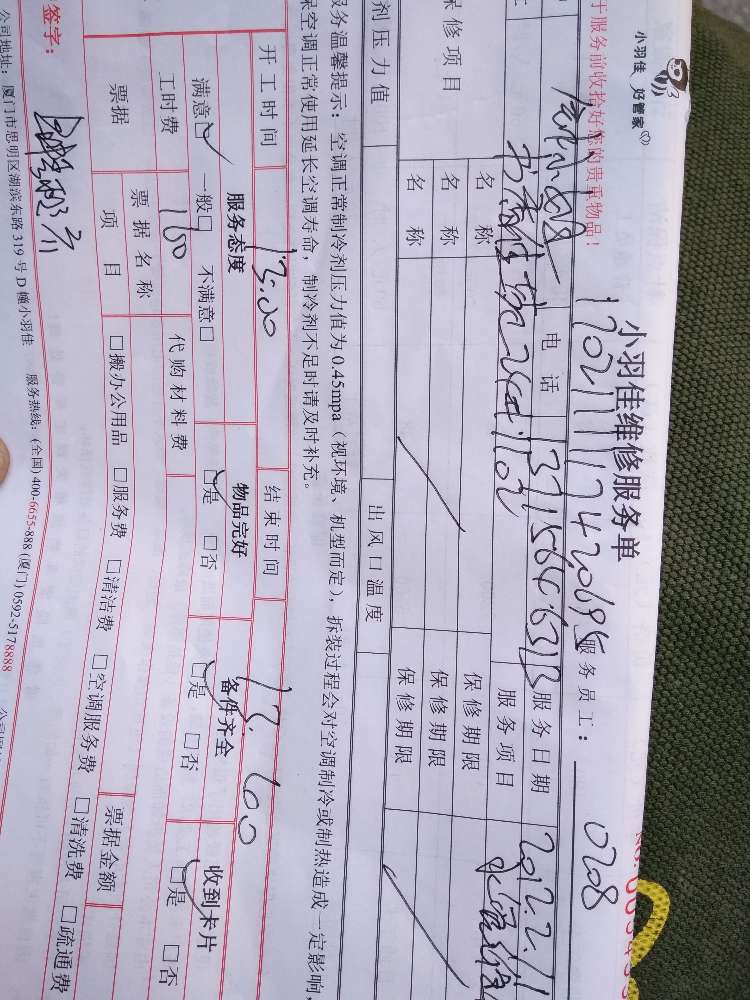 小羽佳 好管家
小羽佳维修服务单
于服务前收拾好您的贵重物品！
服务员工： 0208
电话
服务日期
服务项目
保修项目
名称
保修期限
名称
保修期限
名称
保修期限
剂压力值
出风口温度
服务温馨提示：空调正常制冷剂压力值为0.45mpa（视环境、机型而定），拆装过程会对空调制冷或制热造成一定影响，
保空调正常使用延长空调寿命，制冷剂不足时请及时补充。
开工时间
结束时间
服务态度 物品完好 备件齐全 收到卡片
满意□ 一般□ 不满意□ □是 □否 □是 □否 □是 □否
工时费 160 代购材料费
票据 票据名称 票据金额
项目 □搬办公用品 □服务费 □清洁费 □空调服务费 □清洗费 □疏通费
签字：
公司地址：厦门市思明区湖滨东路319号D幢小羽佳 服务热线：(全国)400-6655-888 (厦门)0592-5178888